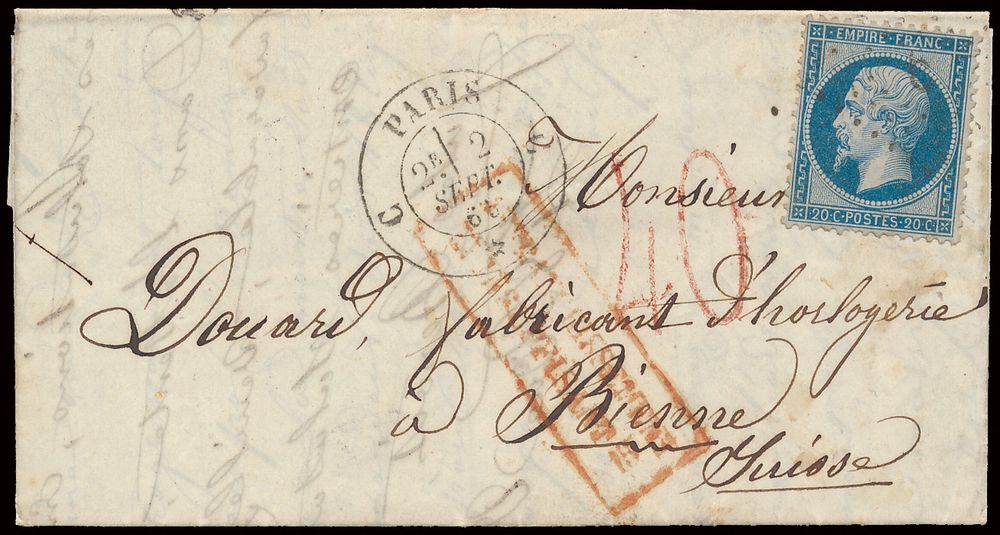 EMPIRE FRANC
20·C·POSTES·20·C
PARIS
2E 2
SEPT.
C C
40
Monsieur
Douard, fabricant d'horlogerie
à Bienne
Suisse